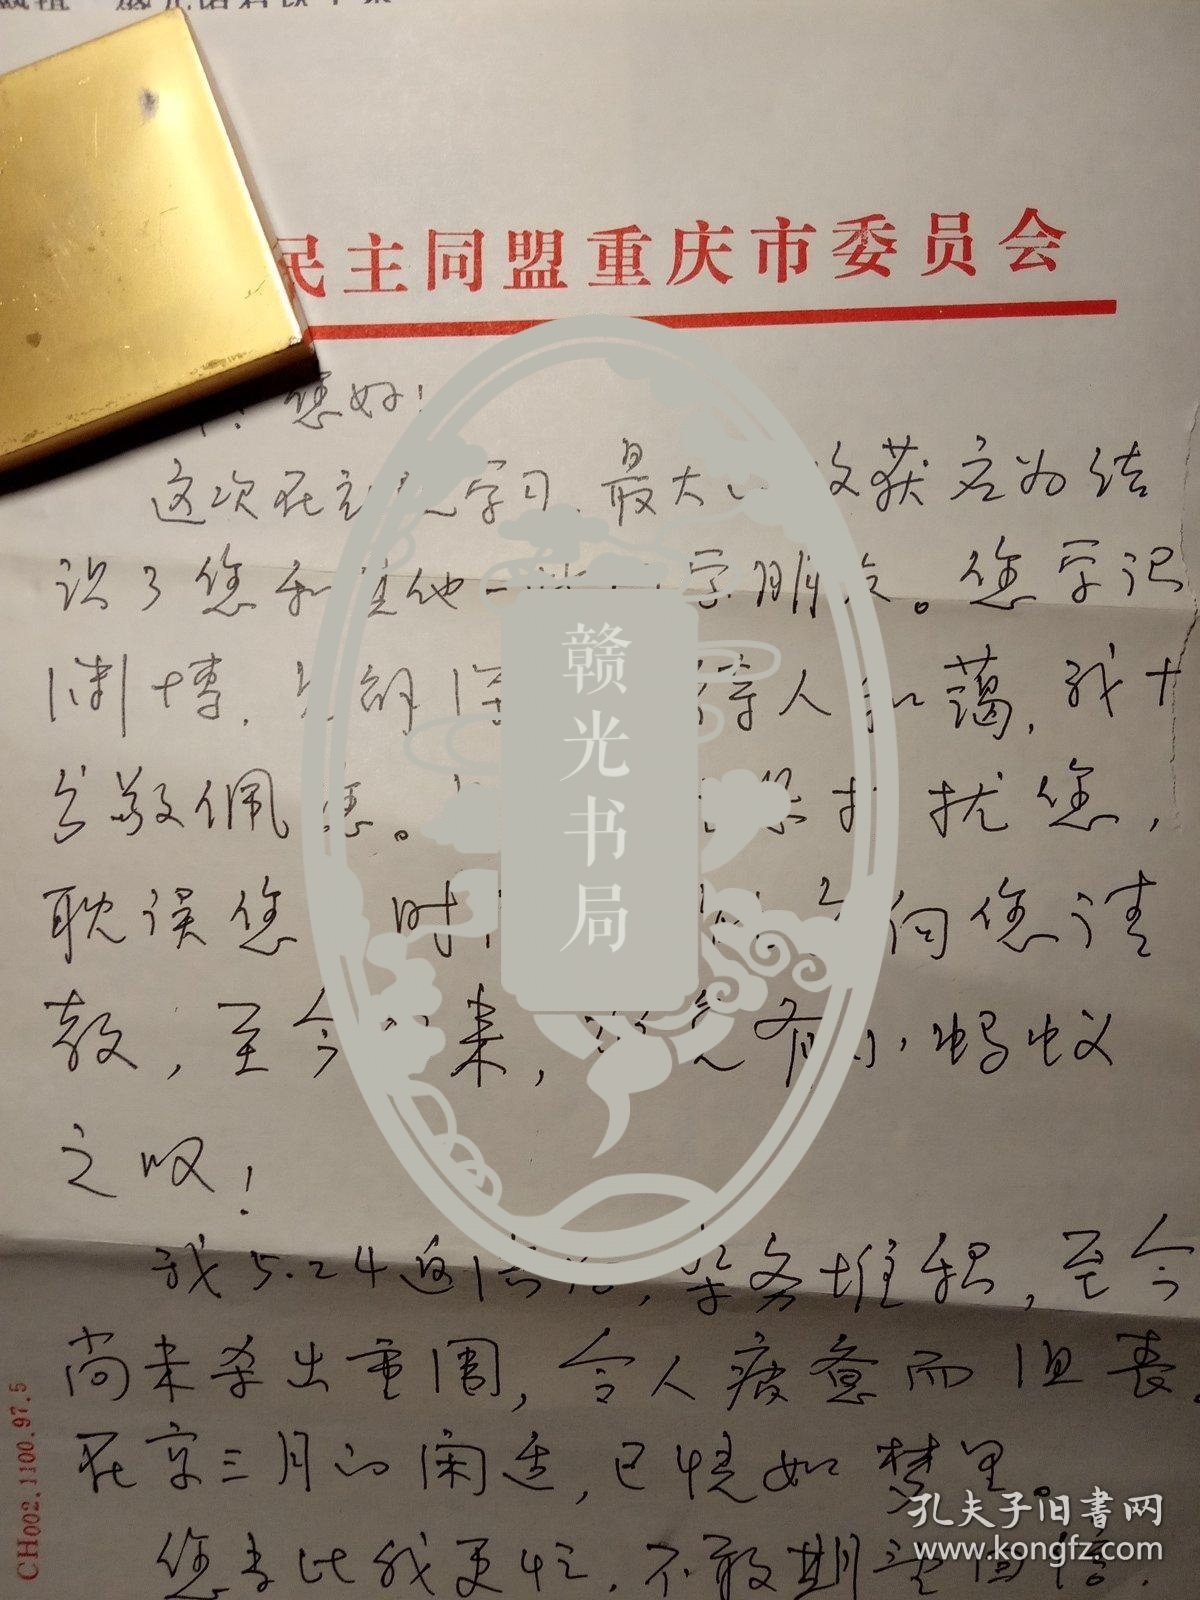 民主同盟重庆市委员会
您好!
这次在 学习,最大 收获应为结
识了您和其他一 学朋友。您学识
渊博, 待人和蔼,我十
分敬佩您。 打扰您,
耽误您 时 向您请
教,至今 来, 有小蚂蚁
之叹!
我5.24返 后,杂务堆积,至今
尚未杀出重围,令人疲惫而沮丧。
在京三月的闲适,已恍如梦里。
您当比我更忙,不敢期望回信,
CH002.1100.97.5
赣光书局
孔夫子旧书网
www.kongfz.com